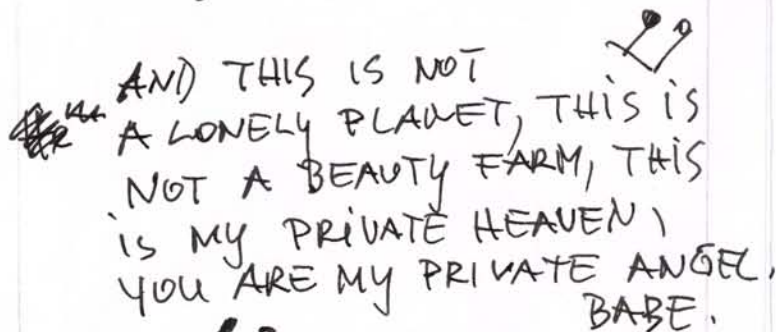 AND THIS IS NOT
A LONELY PLANET, THIS IS
NOT A BEAUTY FARM, THIS
IS MY PRIVATE HEAVEN,
YOU ARE MY PRIVATE ANGEL,
BABE.